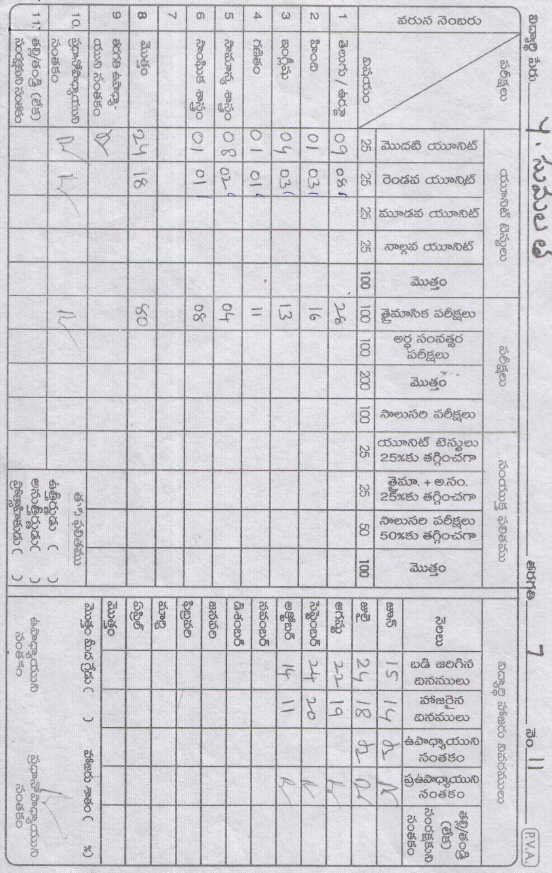 విద్యార్థి పేరు y. సుమలత తరగతి 7 నెం. 11 P.V.A.
వరుస నెంబరు పరీక్షలు విషయం యూనిట్ టెస్టులు పరీక్షలు సంయుక్త ఫలితము
మొదటి యూనిట్ రెండవ యూనిట్ మూడవ యూనిట్ నాల్గవ యూనిట్ మొత్తం త్రైమాసిక పరీక్షలు అర్ధ సంవత్సర పరీక్షలు మొత్తం సాలుసరి పరీక్షలు యూనిట్ టెస్టులు 25%కు తగ్గించగా త్రైమా. + అ.సం. 25%కు తగ్గించగా సాలుసరి పరీక్షలు 50%కు తగ్గించగా మొత్తం
25 25 25 25 100 100 100 200 100 25 25 50 100
1 తెలుగు / ఉర్దూ 09 08 28
2 హింది 01 03 16
3 ఇంగ్లీషు 04 03 13
4 గణితం 01 01 11
5 సామాన్య శాస్త్రం 08 02 04
6 సాంఘిక శాస్త్రం 01 01 08
7
8 మొత్తం 24 18 80
9 తరగతి ఉపాధ్యా-యుని సంతకం
10. ప్రధానోపాధ్యాయుని సంతకం
11. తల్లి/తండ్రి (లేక) సంరక్షకుని సంతకం
తుది ఫలితము
ఉత్తీర్ణుడు ( )
అనుత్తీర్ణుడు ( )
ప్రోత్సాహితుడు ( )
విద్యార్థి హాజరు వివరములు
నెలలు బడి జరిగిన దినములు హాజరైన దినములు ఉపాధ్యాయుని సంతకం ప్రఉపాధ్యాయుని సంతకం తల్లి/తండ్రి (లేక) సంరక్షకుని సంతకం
జూన్ 15 14
జులై 24 18
ఆగష్టు 22 19
సెప్టెంబర్ 24 20
అక్టోబర్ 14 11
నవంబర్
డిశంబర్
జనవరి
ఫిబ్రవరి
మార్చి
ఏప్రిల్
మొత్తం
మొత్తం మీద గ్రేడు ( ) హాజరు శాతం ( %)
ఉపాధ్యాయుని సంతకం ప్రధానోపాధ్యాయుని సంతకం